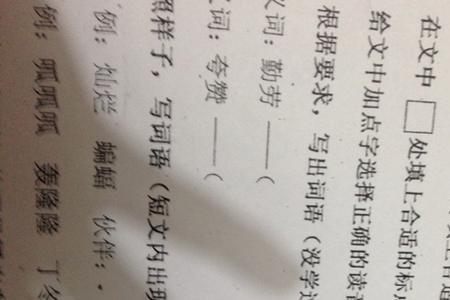 在文中□处填上合适的标
给文中加点字选择正确的读
根据要求，写出词语（没学
义词：勤劳——（
词：夸赞——（
照样子，写词语（短文内出现
例：灿烂 蝙蝠 伙伴：
例：呱呱呱 轰隆隆 丁